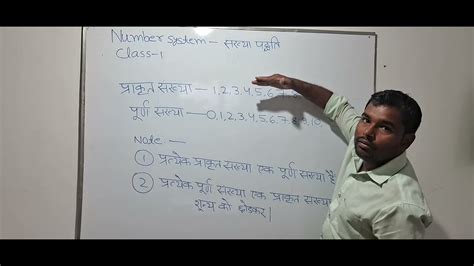 Number system - सख्या पद्धति
Class-1
प्राकृत सख्या — 1,2,3,4,5,6
पूर्ण सख्या — 0,1,2,3,4,5,6,7,8,9,10,
Node —
① प्रत्येक प्राकृत सख्या एक पूर्ण सख्या है
② प्रत्येक पूर्ण सख्या एक प्राकृत सख्या
शून्य को छोडकर|